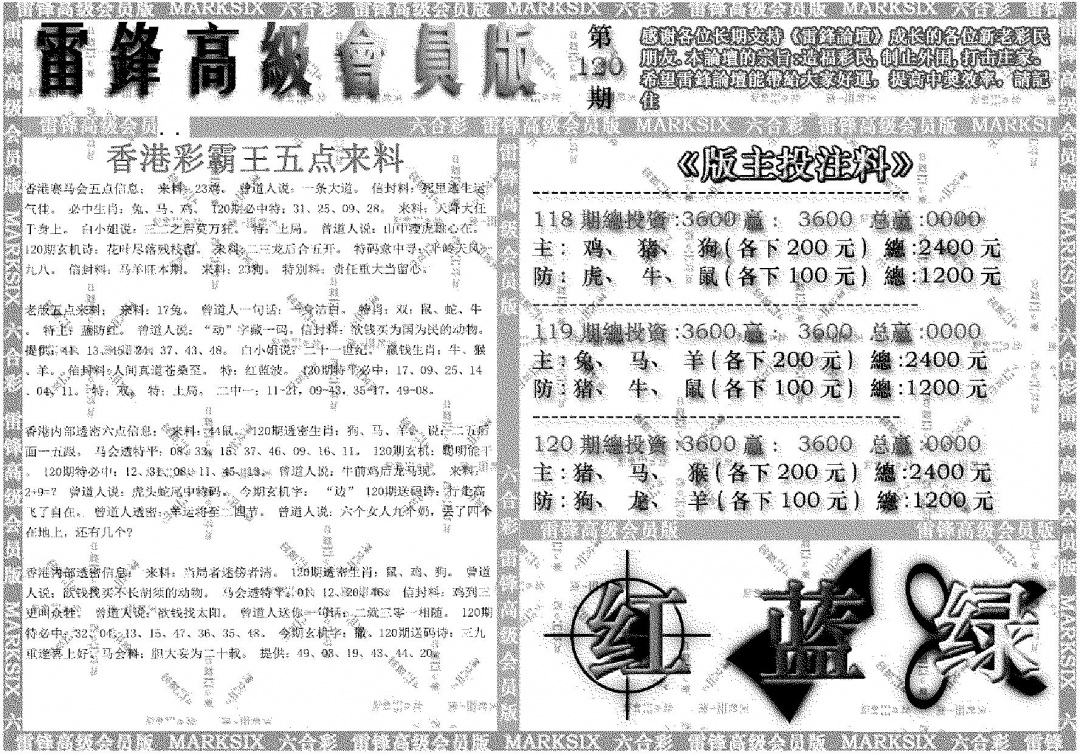 雷锋高级会员版 MARKSIX 六合彩 雷锋高级会员版 MARKSIX 六合彩 雷锋高级会员版 MARKSIX 六合彩 雷锋高级会员版
雷鋒高級會員版
第
120
期
感谢各位长期支持《雷鋒論壇》成长的各位新老彩民
朋友.本論壇的宗旨:造福彩民,制止外围,打击庄家。
希望雷鋒論壇能帶給大家好運, 提高中獎效率, 請記
住
雷锋高级会员
六合彩 雷锋高级会员版 MARKSIX 六合彩 雷锋高级会员版 MARKSI
香港彩霸王五点来料
香港赛马会五点信息: 来料:23鸡。 曾道人说:一条大道。 信封料:死里逃生运
气佳。 必中生肖:兔、马、鸡、 120期必中特:31、25、09、28。 来料:天降大任
于身上。 白小姐说:三二之后莫万犯。 特:上局。 曾道人说:山中瘦虎雄心在。
120期玄机诗:花叶尽落残枝留。 来料:二三龙后合五开。 特码意中寻:平岭大风
九八。 信封料:马羊旺本期。 来料:23狗。 特别料:责任重大当留心。
老版五点来料: 来料:17兔。 曾道人一句话:一身洁白。 特肖:双:鼠、蛇、牛
。 特上:蓝防红。 曾道人说:“动”字藏一码。信封料:欲钱买为国为民的动物。
提供:41、13、45、24、37、43、48。 白小姐说:二十一世纪。 赢钱生肖:牛、猴
、羊。 信封料:人间真道苍桑至。 特:红蓝波。 120期特平必中:17、09、25、14
、04、11。 特:双。 特:上局。 二中一:11-21,09-43,35-17,49-08。
香港内部透密六点信息: 来料:44鼠。 120期透密生肖:狗、马、羊。 说:二五后
面一五跟。 马会透特平:08、33、15、37、46、09、16、11。 120期玄机:聪明能干
。 120期特必中:12、31、08、11、45、13。 曾道人说:牛前鸡后龙马现。 来料:
2+9=? 曾道人说:虎头蛇尾中特码。 今期玄机字: “边” 120期送码诗:行走高
飞了自在。 曾道人透密:幸运将至二四节。 曾道人说:六个女人九个奶,丢了四个
在地上,还有几个?
香港内部透密信息: 来料:当局者迷傍者清。 120期透密生肖:鼠、鸡、狗。 曾道
人说:欲钱找买不长胡须的动物。 马会透特平:01、12、20、46。 信封料:鸡到三
更叫众牲。 曾道人说:欲钱找太阳。 曾道人送你一句话:二就三零一相随。 120期
特必中:32、04、13、15、47、36、35、48。 今期玄机字:撒、120期送码诗:三九
重逢喜上好。马会料:胆大妄为二十载。 提供:49、03、19、43、44、20。
《版主投注料》
118 期總投資:3600 赢: 3600 总赢:0000
主: 鸡、 猪、 狗(各下200元) 總:2400元
防: 虎、 牛、 鼠(各下100元) 總:1200元
119 期總投資:3600 赢: 3600 总赢:0000
主: 兔、 马、 羊(各下200元) 總:2400元
防: 猪、 牛、 鼠(各下100元) 總:1200元
120 期總投資:3600 赢: 3600 总赢:0000
主: 猪、 马、 猴(各下200元) 總:2400元
防: 狗、 龙、 羊(各下100元) 總:1200元
雷锋高级会员版 雷锋高级会员版
红 蓝 绿
雷锋高级会员版 MARKSIX 六合彩 雷锋高级会员版 MARKSIX 六合彩 雷锋高级会员版 MARKSIX 六合彩 雷锋高级会员版